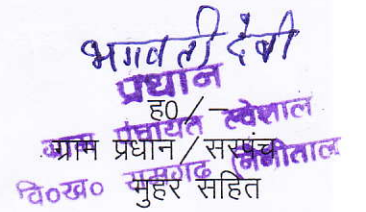 भगवती देवी
प्रधान
ह0 / –
ग्राम पंचायत ल्वेशाल
ग्राम प्रधान / सरपंच
वि०ख० रामगढ़ (नैनीताल
मुहर सहित